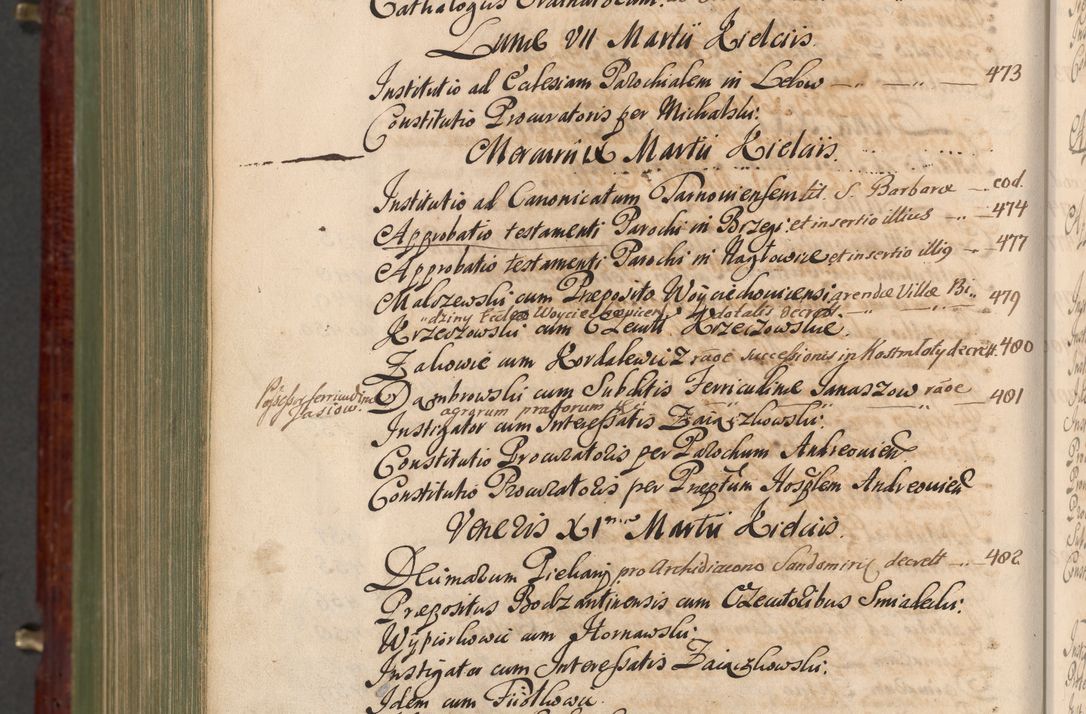 Cathalogus Ordinatorum
Lunae VII Martii Kielciis.
Institutio ad Eclesiam Parochialem in Lelow — „ — „ — 473
Constitutio Procuratoris per Michalski:
Mercurii IX Martii Kielciis.
Institutio ad Canonicatum Tarnoviensem tit. S. Barbarae — eod.
Approbatio testamenti Parochi in Brzegi et insertio illius „ — 474
Approbatio testamenti Parochi in Nagłowice et insertio illig — „ — 477
Malszewski cum Praeposito Woyciechovicensi arendae Villae Bi„ 479
„dziny Woyciechovicen dotalis decret.
Krzeszowski cum Krzeczowskie.
Zakowie cum Kordalewicz rãoe successionis in Kostmłoty decrett. 480
Dąmbrowski cum Subditis Ferriculinae Janaszow rãoe — 481
Jasiow.
agrorum pratorum
Instigator cum Interessatis Zaiączkowski:
Constitutio Procuratoris per Parochum Andreovien
Constitutio Procuratoris per Preptum Hosplem Andreovien
Veneris XI Martii Kielciis.
pro Archidiacono Sandomirien decrett — „ — 482
Praepositus Bodzantinensis cum Smialecki:
Wypiorkowie cum Hornawski:
Instigator cum Interessatis Zaiączkowski:
Idem cum Piotkowa.